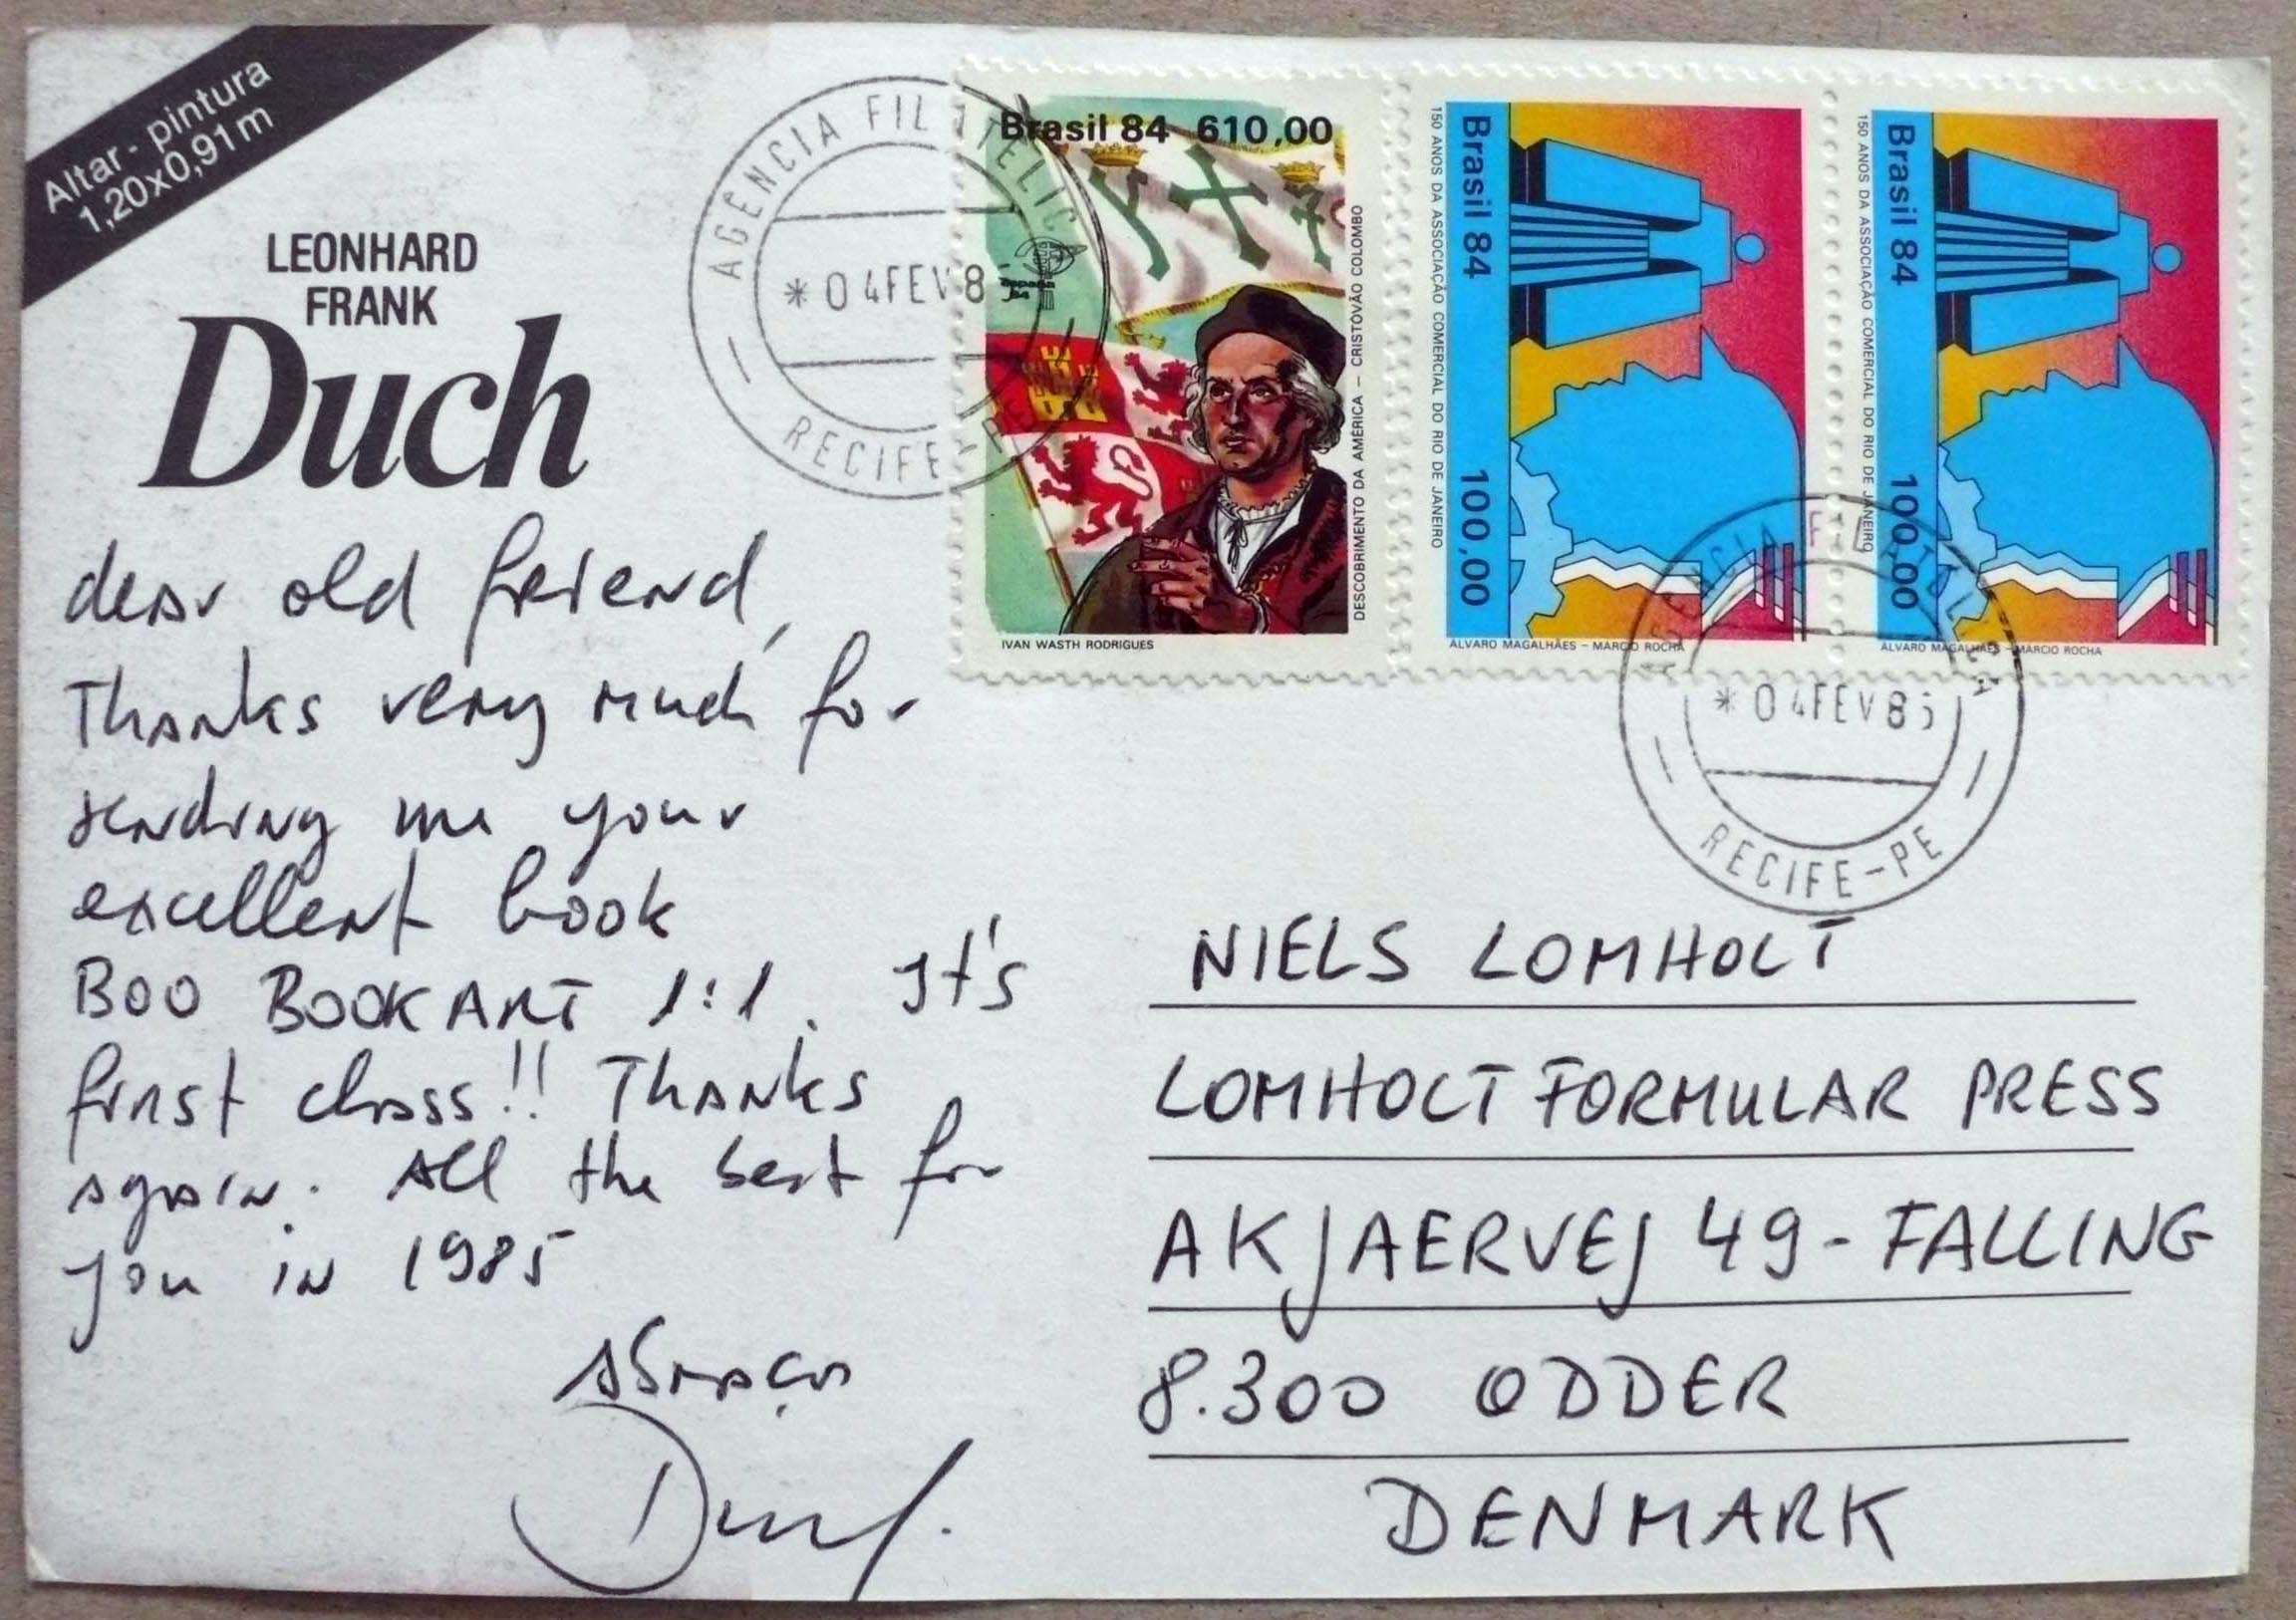 Altar - pintura
1,20x0,91m
LEONHARD
FRANK
Duch
dear old friend,
Thanks very much for
sending me your
excellent book
BOO BOOK ART 1:1. It's
first class!! Thanks
again. All the best for
you in 1985
Abraço
Duch.
AGENCIA FILATELICA
*04FEV85
RECIFE-PE
Brasil 84 610,00
Espana 84
DESCOBRIMENTO DA AMÉRICA – CRISTÓVÃO COLOMBO
IVAN WASTH RODRIGUES
150 ANOS DA ASSOCIAÇÃO COMERCIAL DO RIO DE JANEIRO
Brasil 84 100,00
ÁLVARO MAGALHÃES – MÁRCIO ROCHA
150 ANOS DA ASSOCIAÇÃO COMERCIAL DO RIO DE JANEIRO
Brasil 84 100,00
ÁLVARO MAGALHÃES – MÁRCIO ROCHA
AGENCIA FILATELICA
*04FEV85
RECIFE-PE
NIELS LOMHOLT
LOMHOLT FORMULAR PRESS
AKJAERVEJ 49 - FALLING
8.300 ODDER
DENMARK